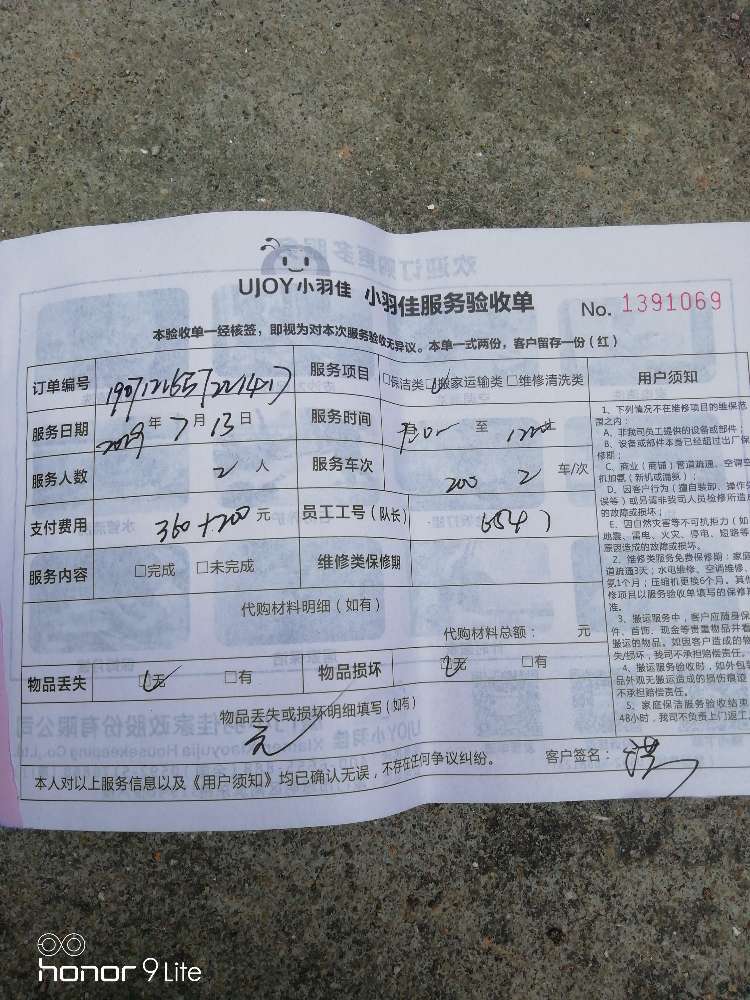 UJOY小羽佳 小羽佳服务验收单 No. 1391069
本验收单一经核签，即视为对本次服务验收无异议。本单一式两份，客户留存一份（红）
订单编号 服务项目 □保洁类 □搬家运输类 □维修清洗类 用户须知
服务日期 2019年7月13日 服务时间 至
服务人数 2人 服务车次 200 2 车/次
支付费用 360+200元 员工工号（队长）
服务内容 □完成 □未完成 维修类保修期
代购材料明细（如有）
代购材料总额： 元
物品丢失 □无 □有 物品损坏 □无 □有
物品丢失或损坏明细填写（如有）
无
本人对以上服务信息以及《用户须知》均已确认无误，不存在任何争议纠纷。 客户签名：洪
1、下列情况不在维修项目的维保范
围之内：
A、非我司员工提供的设备或部件；
B、设备或部件本身已经超过出厂保
修期；
C、商业（商铺）管道疏通、空调空
机加氨（新机或漏氨）；
D、因客户行为（擅自装卸、操作失
误等）或另请非我司人员检修所造成
的故障或损坏；
E、因自然灾害等不可机拒力（如
地震、雷电、火灾、停电、短路等
原因造成的故障或损坏。
2、维修类服务免费保修期：家庭
道疏通3天；水电维修、空调维修、
氨1个月；压缩机更换6个月。其
修项目以服务验收单填写的保修期
准。
3、搬运服务中，客户应随身保
件、首饰、现金等贵重物品并看
搬运的物品。如因客户造成的物
失/损坏，我司不承担赔偿责任。
4、搬运服务验收时，如外包装
品外观无搬运造成的损伤痕迹
不承担赔偿责任。
5、家庭保洁服务验收结束
48小时，我司不负责上门返工
honor 9 Lite